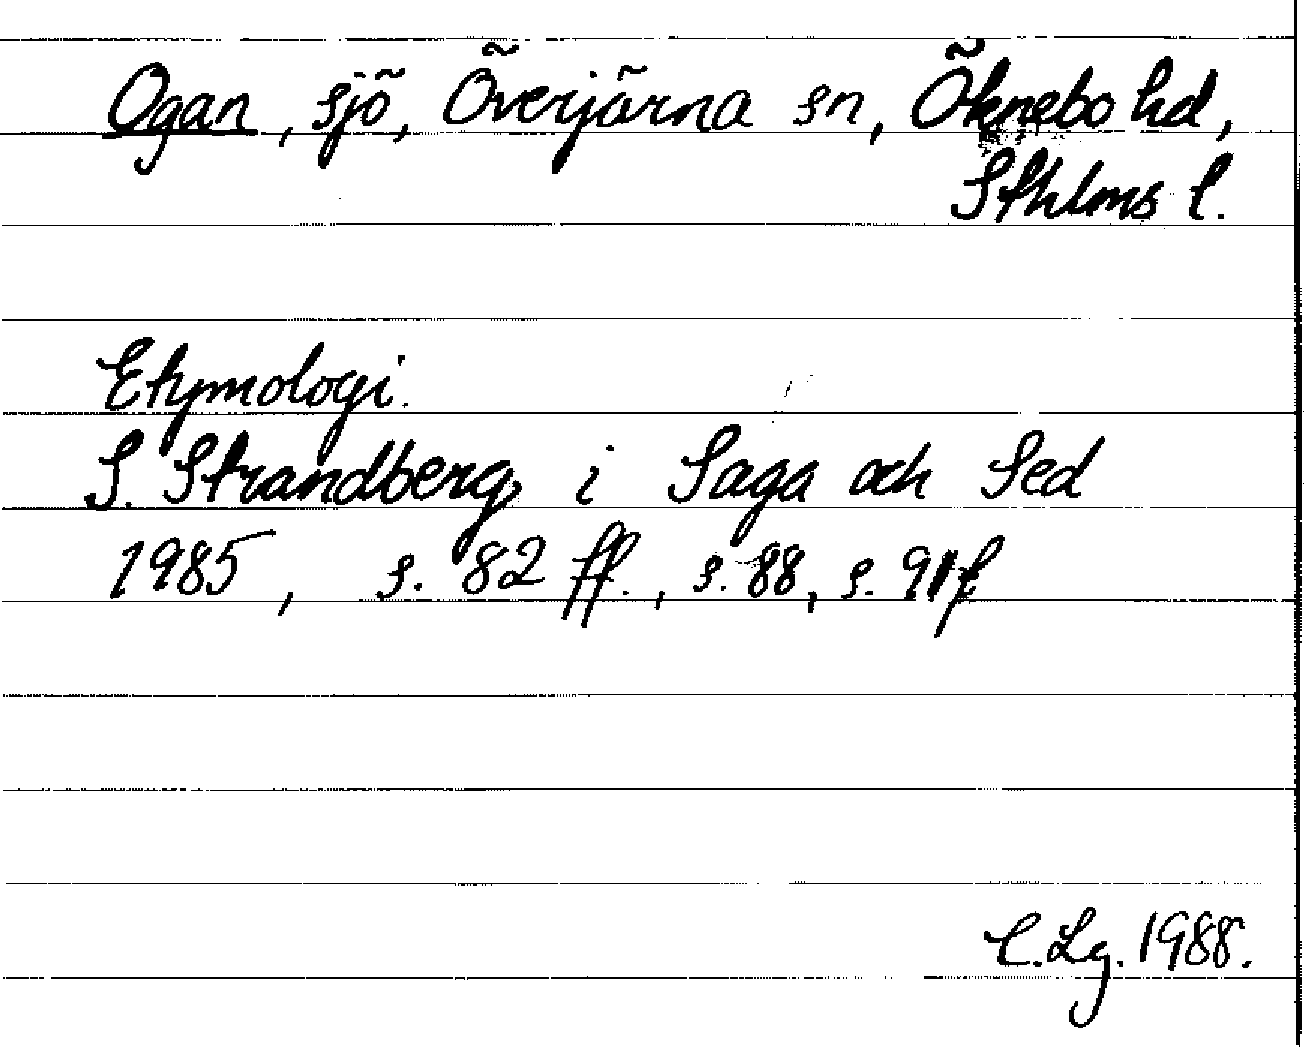 Ogan, sjö, Överjärna sn, Öknebo hd,
Sthlms l.
Etymologi.
S. Strandberg i Saga och Sed
1985, s. 82 ff., s. 88, s. 91 f
C. Lg. 1988.